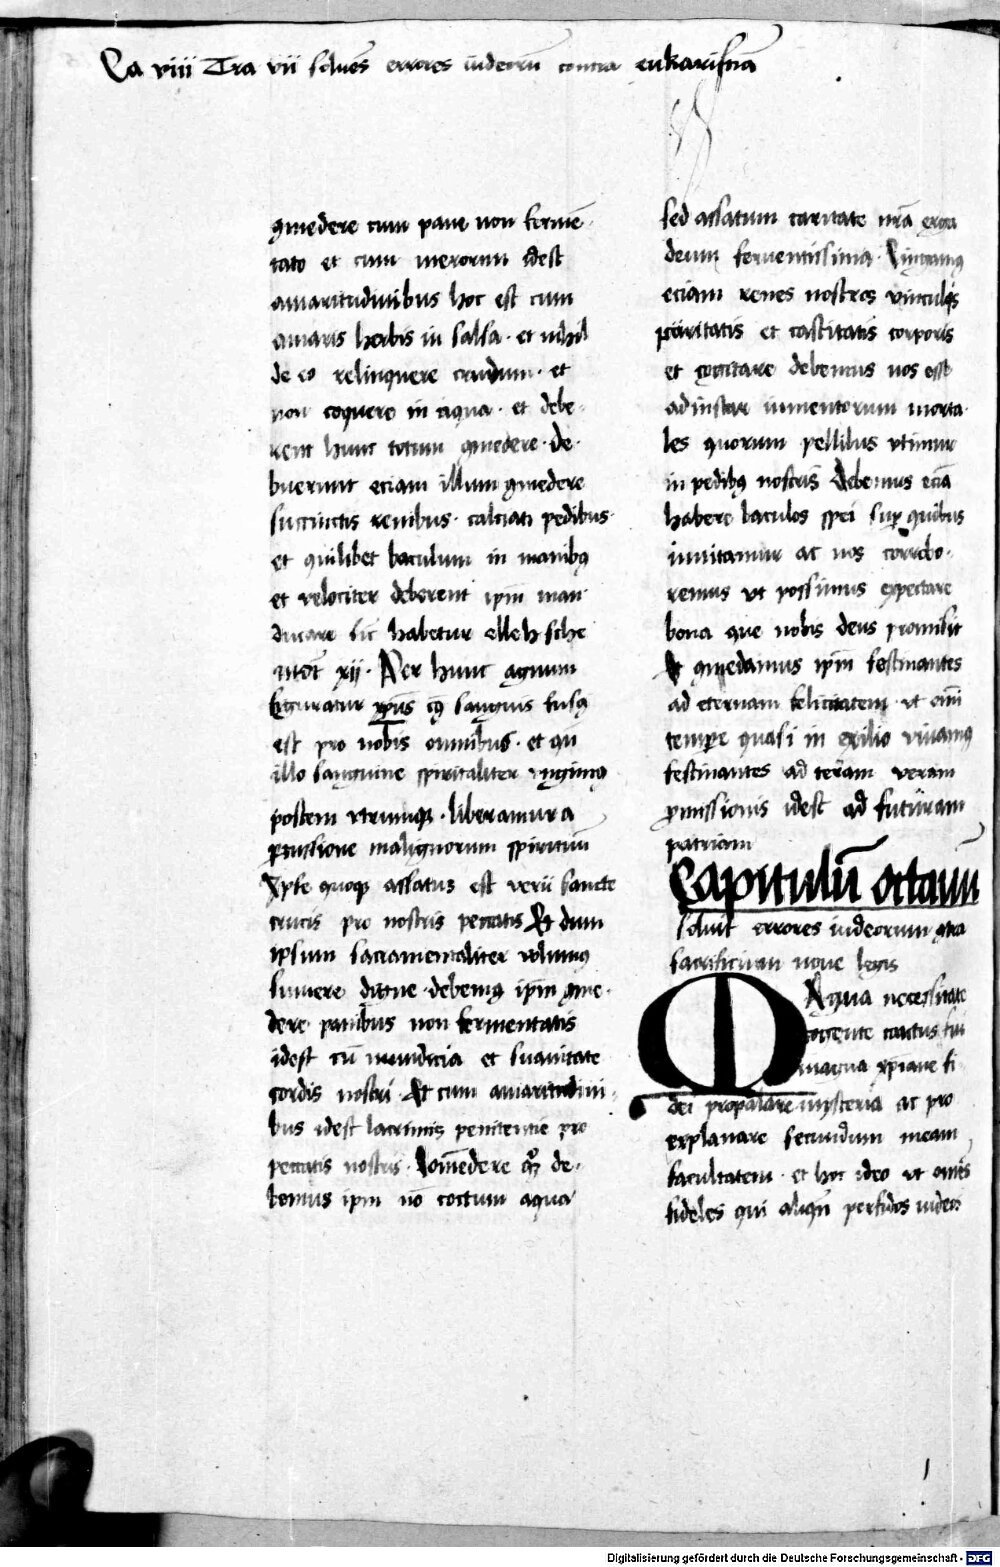 Ca viii Tra vii soluens errores iudeorū contra eukaristiā
9medere cum pane non fermē-
tato et cum merorim idest
amaritudinibus hoc est cum
amaris herbis in salsa · et nihil
de eo relinquere crudum · et
non coquere in aqua · et debe-
rent hunc totum 9medere · de-
buerunt eciam illum 9medere
succinctis renibus · calciati pedibus
et quilibet baculum in manibꝰ
et velociter deberent ipm̄ man-
ducare sic habetur elleh sche
xij · Per hunc agnum
figuratur xpūs cꝰ sanguis fusꝰ
est pro nobis omnibus · et qn̄
illo sanguine spiritaliter vngimꝰ
postem vtrumqꝫ · liberamur a
ꝑcussione malignorum spirituū
Xpſe quoqꝫ assatus est verū sancte
crucis pro nostris peccatis Et dum
ipsum sacramentaliter volumꝰ
sumere digne · debemꝰ ipm̄ 9me-
dere · panibus non fermentatis
idest cū mundicia et suauitate
cordis nostri · Et cum amaritudini-
bus idest lacrimis penitentie pro
peccatis nostris · Comedere de-
bemus ipm nō coctum aqua
sed assatum caritate nrā erga
deum feruentissima · Cingamꝰ
eciam renes nostros vinculis
puritatis et castitatis corporis
et cogitare debemus nos esse
adinstar iumentorum morta-
les quorum pellibus vtimur
in pedibꝰ nostris Debemus eciā
habere baculos spei sup quibus
innitamur ac nos corrobo-
remus vt possimus expectare
bona que nobis deus promisit
Et 9medamus ipm̄ festinantes
ad eternam felicitatem · vt omī
tempore quasi in exilio viuamꝰ
festinantes ad terram veram
ꝓmissionis idest ad futuram
patriam
Capitulū octauū
soluit errores iudeorum 9tra
sacrificium noue legis
Magua necessitate
cogente tactus sum
magna xp̄iane fi-
dei propalare mysteria ac pro
explanare secundum meam
facultatem · et hoc ideo vt om̄s
fideles qui aliqn̄ perfidos iudeos
Digitalisierung gefördert durch die Deutsche Forschungsgemeinschaft - DFG